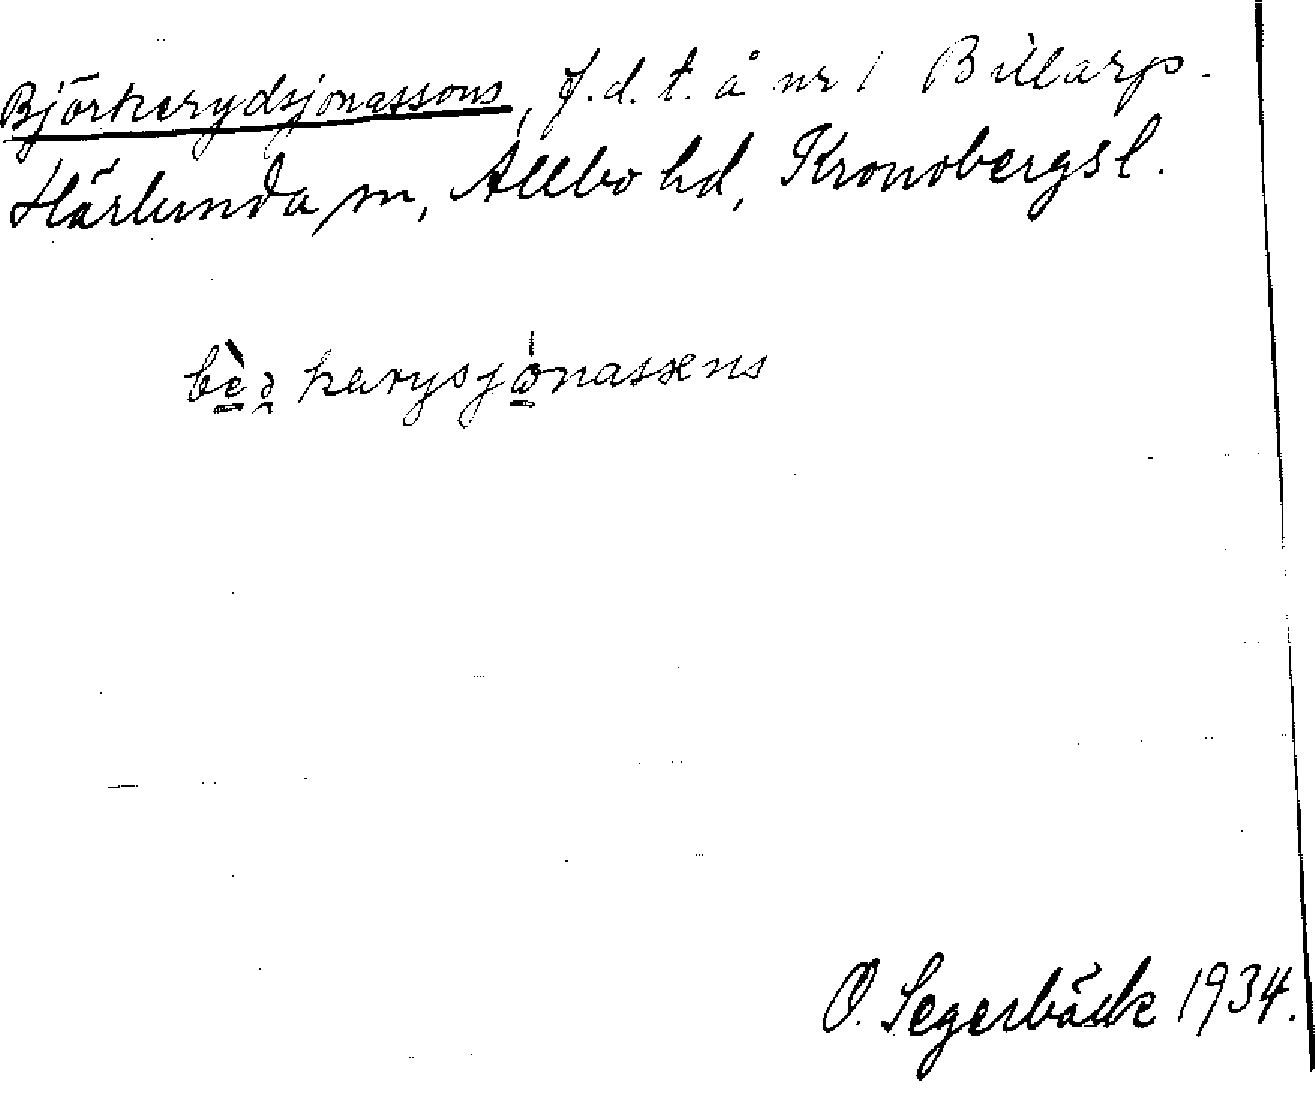 Björkerydsjonassons, f.d.t. å nr 1 Billarp.
Härlunda sn, Allbo hd, Kronobergs l.
kerysjonassens
O. Segerbäck 1934.